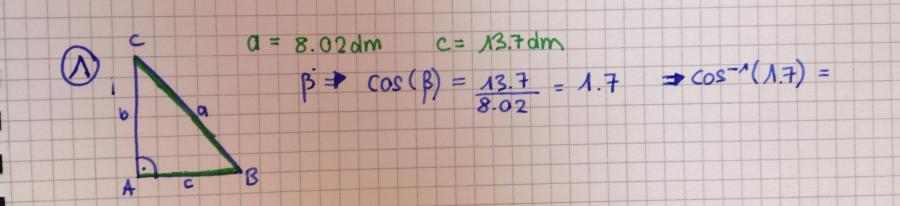 1
C
a = 8.02dm c = 13.7dm
β ⇒ cos(β) = 13.7/8.02 = 1.7 ⇒ cos⁻¹(1.7) =
b a
A c B